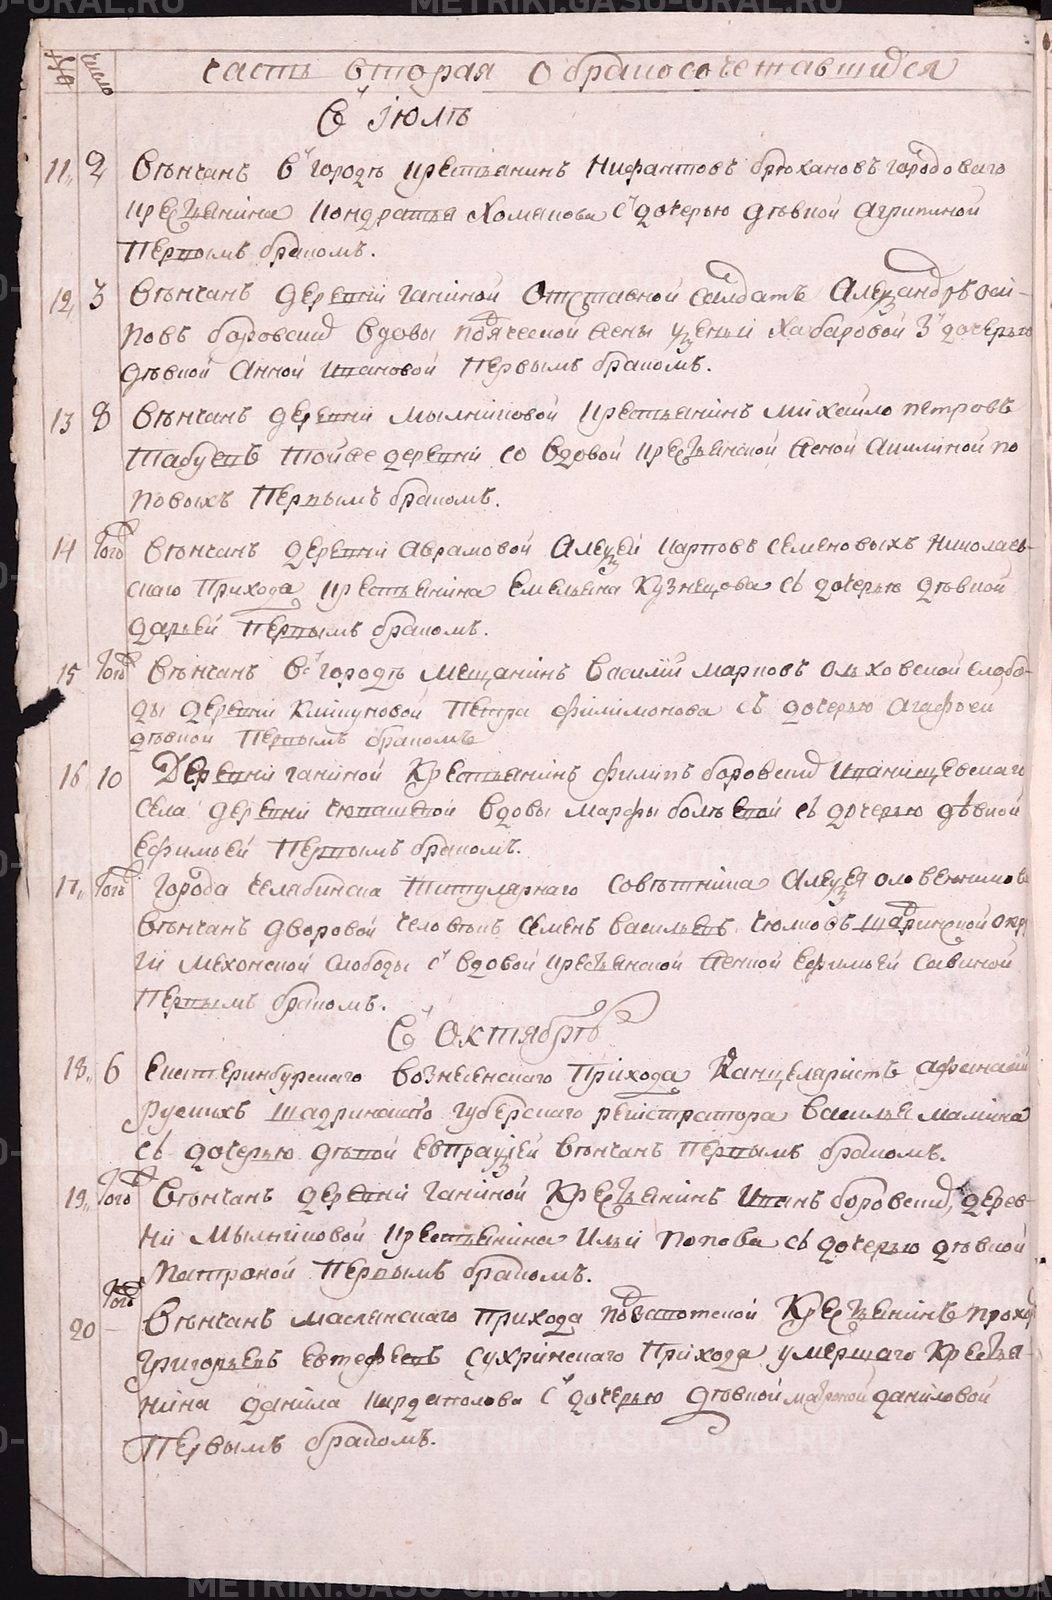 METRIKI.GASO-URAL.RU
№ число часть вторая о бракосочетавшихся
Въ июлѣ
11, 2 Вѣнчанъ въ городѣ крестьянинъ Нифантовъ Брюхановъ городоваго
крестьянина Кондратья Хоменова съ дочерью дѣвкой Агрипиной
Первымъ бракомъ.
12, 3 Вѣнчанъ деревни Ганиной отставной салдатъ Александръ Оси-
повъ Боровских вдовы Хабаровой з дочерью
дѣвкой Анной Ивановой первымъ бракомъ.
13 8 Вѣнчанъ деревни Мылниковой крестьянинъ Михайло Петровъ
той же деревни со вдовой крестьянской женой Акилиной По
повыхъ Первымъ бракомъ.
14 Того Вѣнчанъ деревни Аврамовой Алексей Карповъ Семеновыхъ Николаев-
скаго прихода крестьянина Емельяна Кузнецова съ дочерью дѣвкой
Дарьей Первымъ бракомъ.
15 Того Вѣнчанъ въ городѣ мещанинъ Василий Марковъ Ольховской слобо-
ды деревни Кишуновой Петра Филимонова съ дочерью Агафьей
дѣвкой Первымъ бракомъ
16 10 Деревни Ганиной Крестьянинъ Филипъ Боровских Иванищевскаго
села деревни вдовы Марфы съ дочерью дѣвкой
Ефимьей Первымъ бракомъ.
17, Того Города Челябинска Титулярнаго Совѣтника Алексея
вѣнчанъ дворовой человѣкъ Семенъ Васильевъ Шадринской окру
ги Мехонской слободы съ вдовой крестьянской женкой Ефимьей Савиной
Первымъ бракомъ.
Въ Октябрѣ
18, 6 Екатеринбурскаго Вознесенскаго Прихода Канцеляристъ Афанасий
Рускихъ Шадринскаго губернскаго регистратора Василья Мамина
съ дочерью дѣвкой Евпраксией вѣнчанъ Первымъ бракомъ.
19, Того Вѣнчанъ деревни Ганиной Крестьянинъ Иванъ Боровских, дерев-
ни Мыльниковой крестьянина Ильи Попова съ дочерью дѣвкой
Матроной Первымъ бракомъ.
20 Того Вѣнчанъ Маслянскаго Прихода Крестьянинъ Прохор
Григорьевъ Сухринскаго Прихода умершаго Крестья-
нина Данила Кардаполова съ дочерью дѣвкой Матроной Даниловой
Первымъ бракомъ.
METRIKI.GASO-URAL.RU